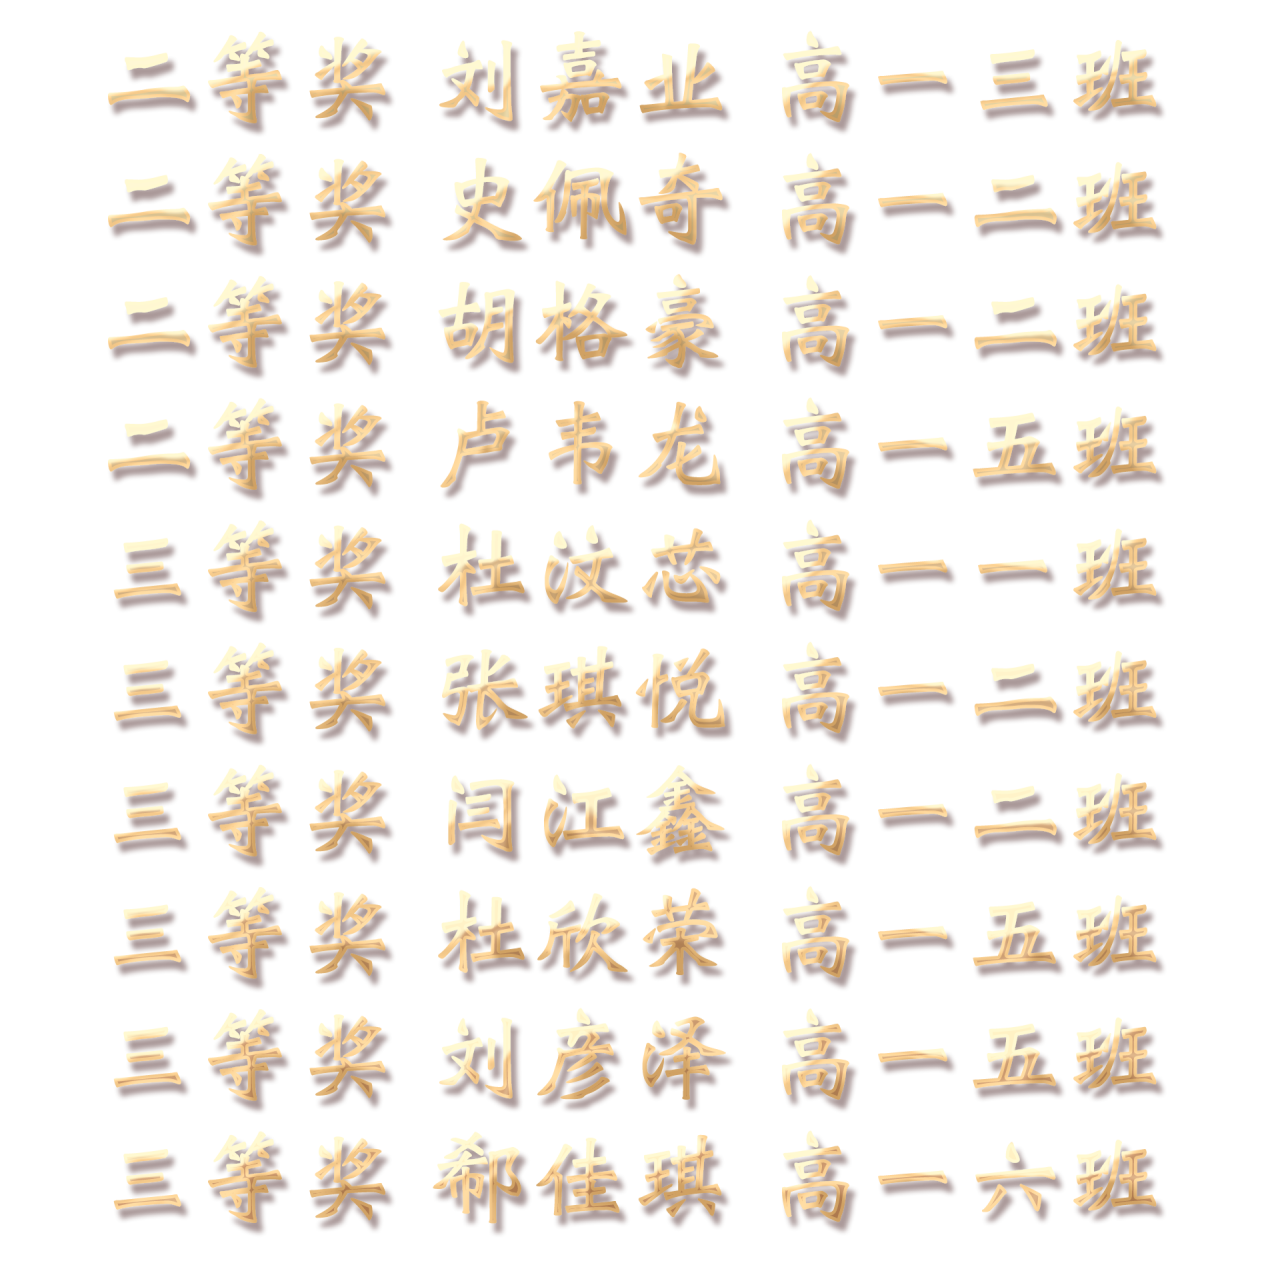 二等奖 刘嘉业 高一三班
二等奖 史佩奇 高一二班
二等奖 胡格豪 高一二班
二等奖 卢韦龙 高一五班
三等奖 杜汶芯 高一一班
三等奖 张琪悦 高一二班
三等奖 闫江鑫 高一二班
三等奖 杜欣荣 高一五班
三等奖 刘彦泽 高一五班
三等奖 郗佳琪 高一六班